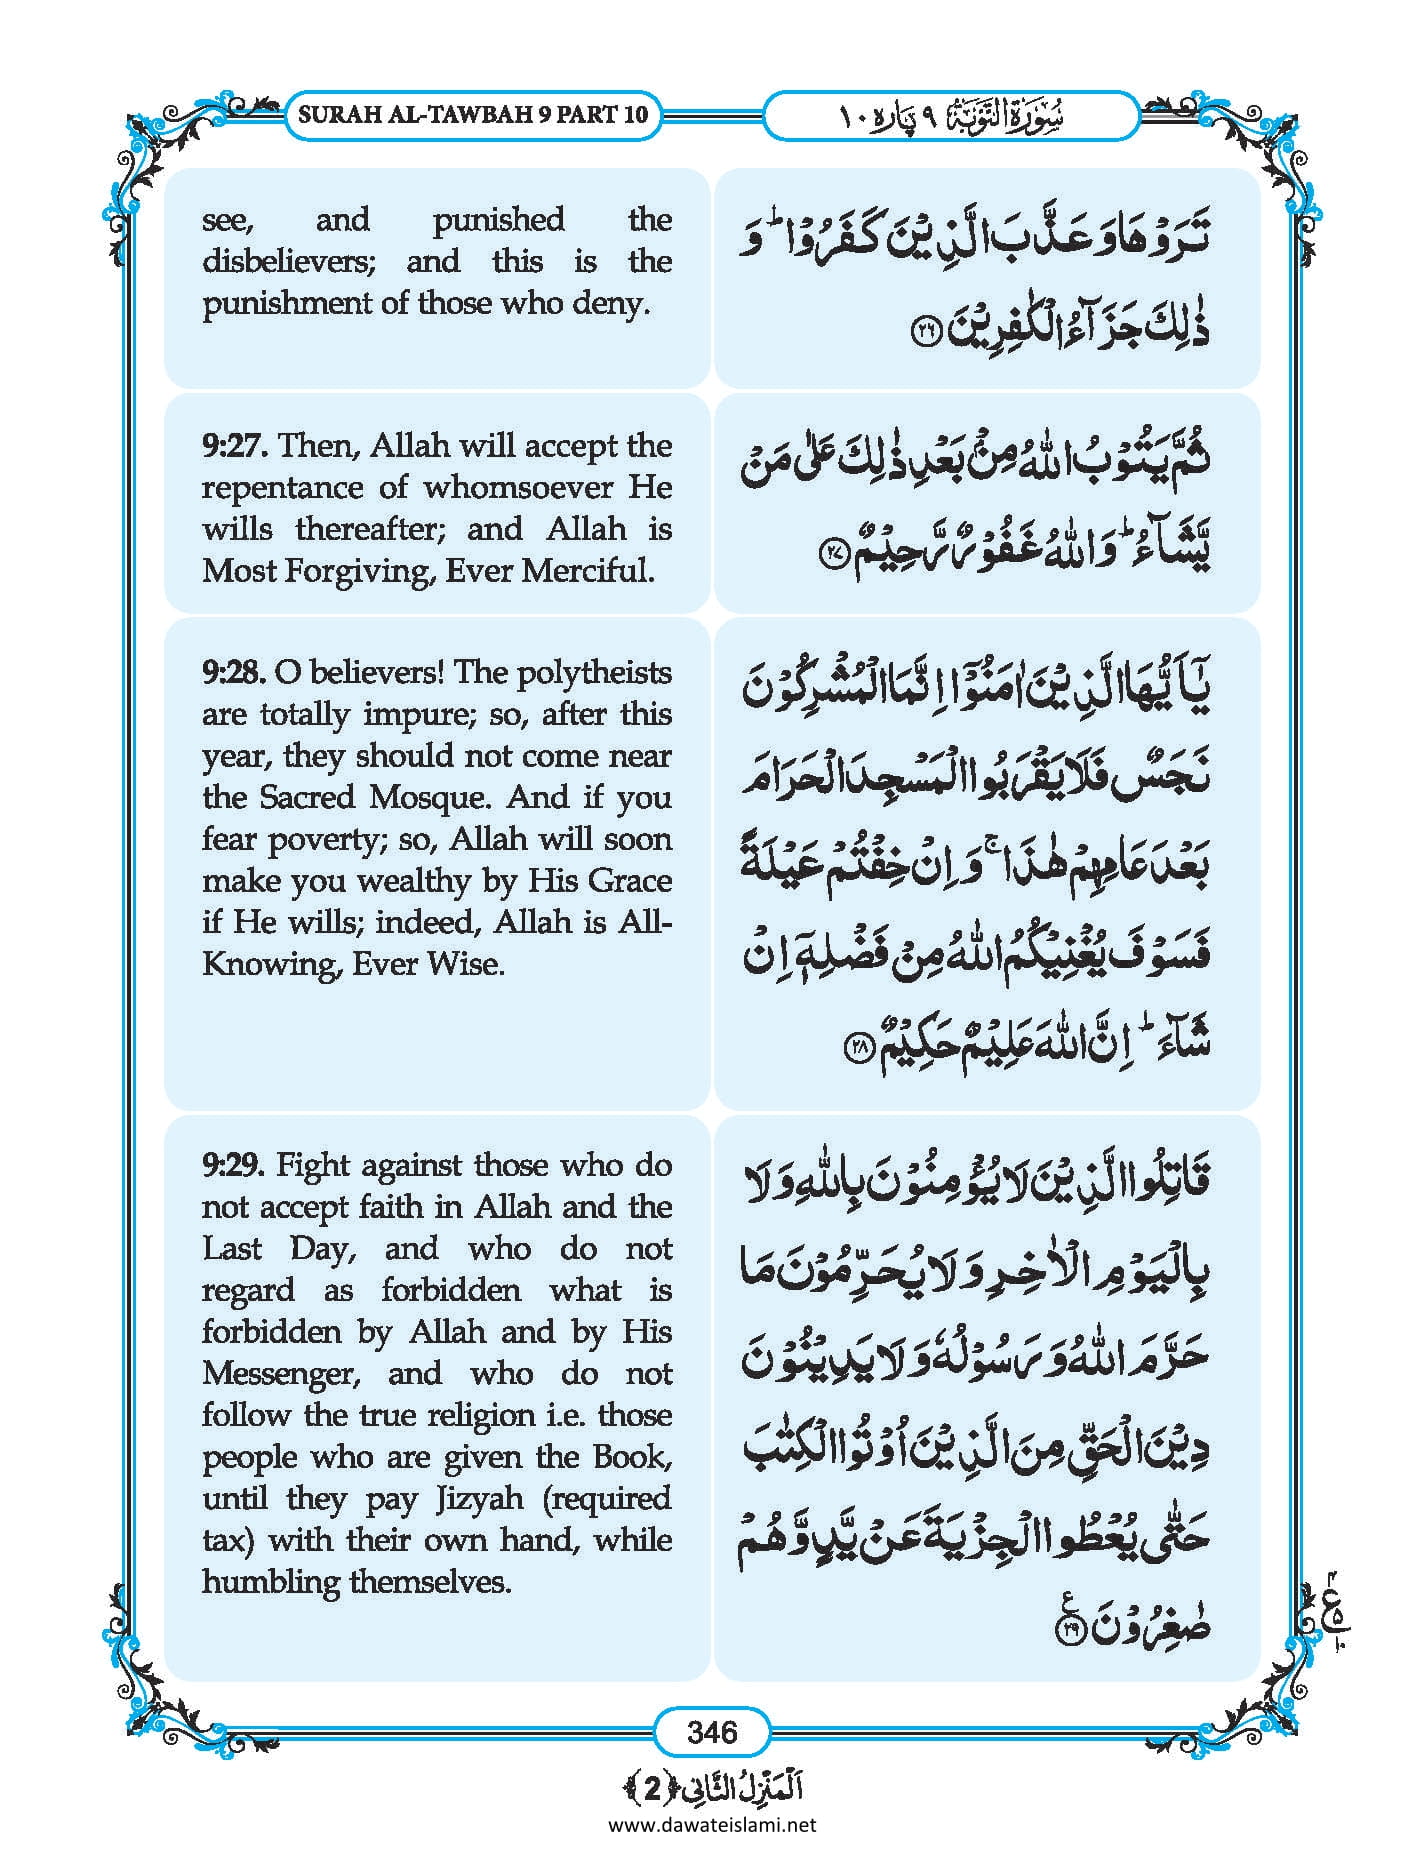 SURAH AL-TAWBAH 9 PART 10
سُوۡرَۃُ التَّوۡبَۃِ ۹ پارہ ۱۰
see, and punished the
disbelievers; and this is the
punishment of those who deny.
تَرَوۡهَا وَعَذَّبَ الَّذِيۡنَ كَفَرُوۡا ؕ وَ
ذٰلِكَ جَزَآءُ الۡكٰفِرِيۡنَ ﴿۲۶﴾
9:27. Then, Allah will accept the
repentance of whomsoever He
wills thereafter; and Allah is
Most Forgiving, Ever Merciful.
ثُمَّ يَتُوۡبُ اللّٰهُ مِنۡۢ بَعۡدِ ذٰلِكَ عَلٰى مَنۡ
يَّشَآءُ ؕ وَاللّٰهُ غَفُوۡرٌ رَّحِيۡمٌ ﴿۲۷﴾
9:28. O believers! The polytheists
are totally impure; so, after this
year, they should not come near
the Sacred Mosque. And if you
fear poverty; so, Allah will soon
make you wealthy by His Grace
if He wills; indeed, Allah is All-
Knowing, Ever Wise.
يٰۤاَيُّهَا الَّذِيۡنَ اٰمَنُوۡۤا اِنَّمَا الۡمُشۡرِكُوۡنَ
نَجَسٌ فَلَا يَقۡرَبُوا الۡمَسۡجِدَ الۡحَرَامَ
بَعۡدَ عَامِهِمۡ هٰذَا ۚ وَ اِنۡ خِفۡتُمۡ عَيۡلَةً
فَسَوۡفَ يُغۡنِيۡكُمُ اللّٰهُ مِنۡ فَضۡلِهٖۤ اِنۡ
شَآءَ ؕ اِنَّ اللّٰهَ عَلِيۡمٌ حَكِيۡمٌ ﴿۲۸﴾
9:29. Fight against those who do
not accept faith in Allah and the
Last Day, and who do not
regard as forbidden what is
forbidden by Allah and by His
Messenger, and who do not
follow the true religion i.e. those
people who are given the Book,
until they pay Jizyah (required
tax) with their own hand, while
humbling themselves.
قَاتِلُوا الَّذِيۡنَ لَا يُؤۡمِنُوۡنَ بِاللّٰهِ وَ لَا
بِالۡيَوۡمِ الۡاٰخِرِ وَ لَا يُحَرِّمُوۡنَ مَا
حَرَّمَ اللّٰهُ وَ رَسُوۡلُهٗ وَ لَا يَدِيۡنُوۡنَ
دِيۡنَ الۡحَقِّ مِنَ الَّذِيۡنَ اُوۡتُوا الۡكِتٰبَ
حَتّٰى يُعۡطُوا الۡجِزۡيَةَ عَنۡ يَّدٍ وَّ هُمۡ
صٰغِرُوۡنَ ﴿۲۹﴾ ع
346
اَلۡمَنۡزِلُ الثَّانِی ﴿2﴾
www.dawateislami.net